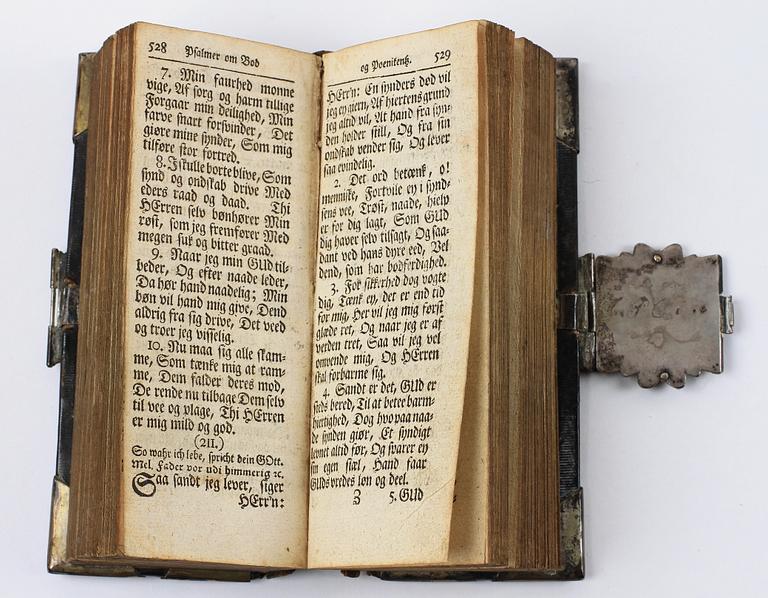 528 Psalmer om Bod
7. Min faurhed monne
vige, Af sorg og harm tillige
Forgaar min deilighed, Min
farve snart forsvinder, Det
giøre mine synder, Som mig
tilføre stor fortred.
8. J skulle borte blive, Som
synd og ondskab drive Med
eders raad og daad. Thi
HErren selv bønhører Min
røst, som jeg fremfører Med
megen suk og bitter graad.
9. Naar jeg min GUd til-
beder, Og efter naade leder,
Da hør hand naadelig; Min
bøn vil hand mig give, Dend
aldrig fra sig drive, Det veed
og troer jeg visselig.
10. Nu maa sig alle skam-
me, Som tænke mig at ram-
me, Dem falder deres mod,
De rende nu tilbage Dem selv
til vee og plage, Thi HErren
er mig mild og god.
(211.)
So wahr ich lebe, spricht dein GOtt.
Mel. Fader vor udi himmerig ꝛc.
Saa sandt jeg lever, siger
HErr'n:
og Poenitentz. 529
HErr'n: En synders død vil
jeg ey gern, Af hiertens grund
jeg altid vil, At hand fra syn-
den holder still, Og fra sin
ondskab vender sig, Og lever
saa evindelig.
2. Det ord betænk, o!
menniske, Fortvile ey i synd-
sens vee, Trøst, naade, hielp
er for dig lagt, Som GUd
dig haver selv tilsagt, Og saa-
dant ved hans dyre eed, Vel
dend, som har bodferdighed.
3. For sikkerhed dog vogte
dig, Tænk ey, der er end tid
for mig, Her vil jeg mig først
glæde ret, Og naar jeg er af
verden tret, Saa vil jeg vel
omvende mig, Og HErren
skal forbarme sig.
4. Sandt er det, GUd er
steds bered, Til at betee barm-
hiertighed, Dog hvo paa naa-
de synden giør, Et syndigt
levnet altid før, Og svarer ey
sin egen siæl, Hand faar
GUds vredes løn og deel.
Z 5. GUd